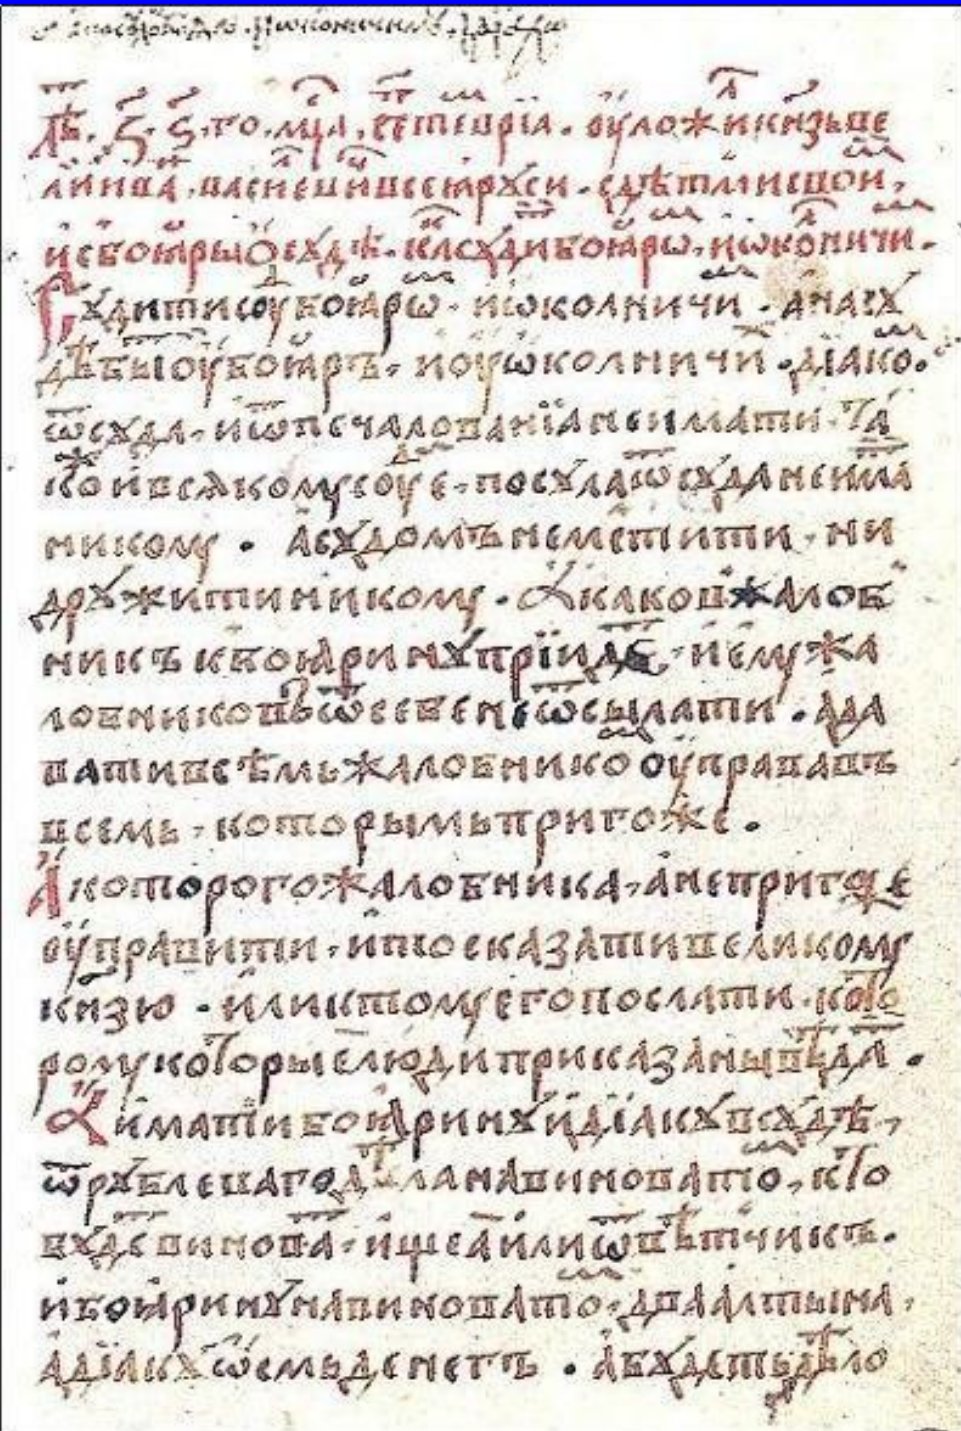 лѣт ҂ѕ҃ ѕ҃ го мц҃а септемврїа оуложил кн҃зь ве
ликїи иван васильевич всеѧ рꙋси с дѣтми своими
и с боѧры ѡ сꙋдѣ как сꙋдити боѧром и ѡколничим
Сꙋдити сꙋд боѧрѡм и ѡколничим а на сꙋ
дѣ быти оу боѧръ и оу ѡколничих дїакѡм а посулов боѧром и ѡколничим и дїаком
ѿ сꙋда и ѿ печалованїа не имати та
кож и всѧкому сѹдїе посула ѿ сꙋда не имати
никому а сꙋдомъ не мстити ни
дрꙋжити никому А каков жалоб
никъ к боѧринꙋ прїидет и ему жа
лобниковъ ѿ себе не ѿсылати а да
вати всѣмь жалобником оуправа въ
всемь которымь пригоже
А которого жалобника а не пригоже
оуправити и то сказати великому
кн҃зю или к тому его послати кото
рому которые люди приказаны вѣдати
А имати боѧринꙋ и дїакꙋ в сꙋдѣ
ѿ рꙋблеваго дѣла на виноватом кто
бꙋдет виноват ищеа или ѿвѣтчикъ
и боѧринꙋ на виноватом два алтына
а дїакꙋ ѡсмь денегъ а бꙋдеть дѣло